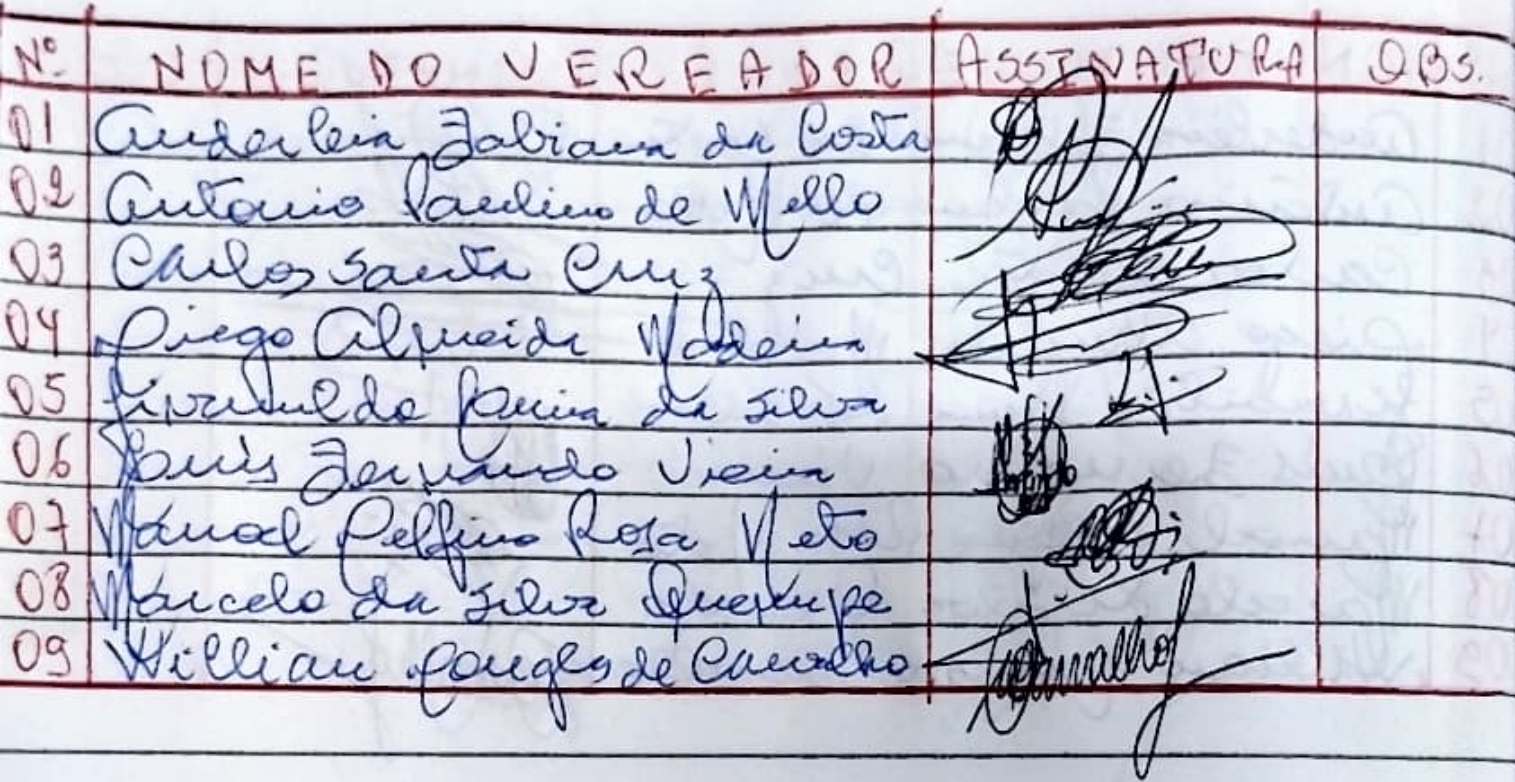 Nº NOME DO VEREADOR ASSINATURA OBS.
01 Anderleia Fabiana da Costa
02 Antonio Paulino de Mello
03 Carlos Santa Cruz
04 Diego Almeida Madeira
05 da Silva
06 Luís Fernando Vieira
07 Manoel Delfino Rosa Neto
08 Marcelo da Silva
09 Willian Douglas de Carvalho Carvalho